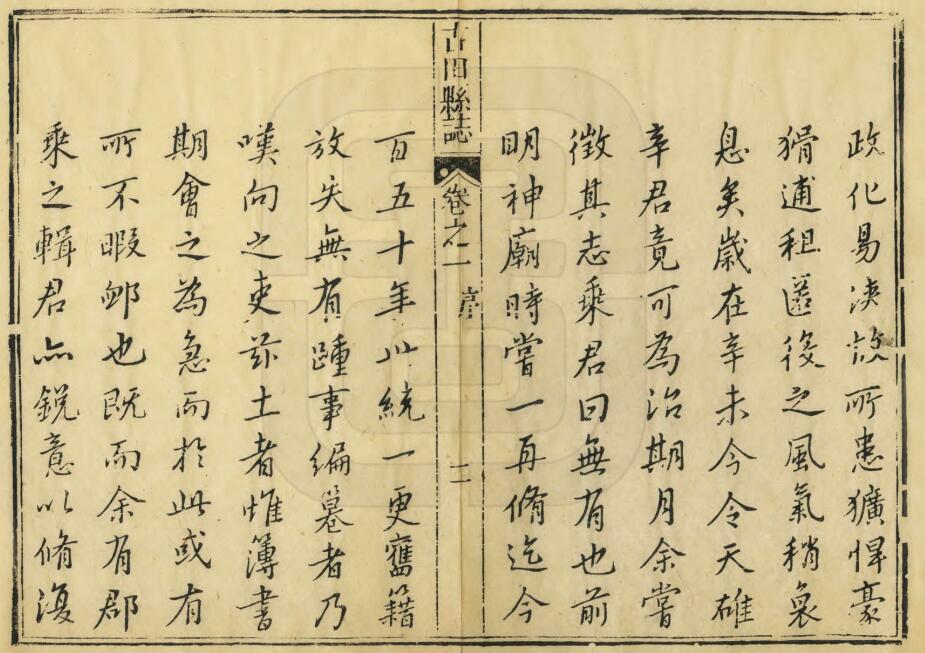 政化易浹故所患獷悍豪
猾逋租匿後之風氣稍衰
息矣歲在辛未今令天雄
辛君竟可為治期月余嘗
徵其志乘君曰無有也前
明神廟時嘗一再脩迄今
古田縣誌
卷之一
序
二
百五十年以統一更舊籍
放失無有踵事編纂者乃
嘆向之吏玆土者惟簿書
期會之為急而於此或有
所不暇卹也既而余有郡
乘之輯君亦銳意以脩復